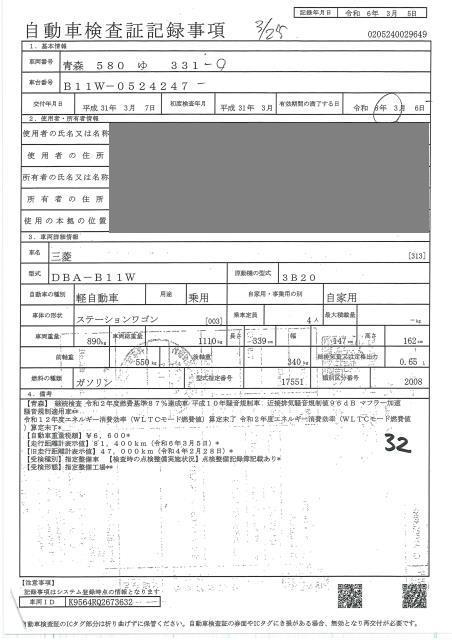 記録年月日 令和 6年 3月 5日
自動車検査証記録事項
3/25
0205240029649
1. 基本情報
車両番号 青森 580 ゆ 331-9
車台番号 B11W-0524247
交付年月日 平成31年 3月 7日 初度検査年月 平成31年 3月 有効期間の満了する日 令和 8年 3月 6日
2. 使用者・所有者情報
使用者の氏名又は名称
使用者の住所
所有者の氏名又は名称
所有者の住所
使用の本拠の位置
3. 車両詳細情報
車名 三菱 [313]
型式 DBA-B11W 原動機の型式 3B20
自動車の種別 軽自動車 用途 乗用 自家用・事業用の別 自家用
車体の形状 ステーションワゴン [003] 乗車定員 4人 最大積載量 -kg
車両重量 890kg 車両総重量 1110kg 長さ 339cm 幅 147cm 高さ 162cm
前軸重 550kg 後軸重 340kg 総排気量又は定格出力 0.65 L
燃料の種類 ガソリン 型式指定番号 17551 類別区分番号 2008
4. 備考
【青森】 継続検査 令和2年度燃費基準87%達成車 平成10年騒音規制車、近接排気騒音規制値96dB マフラー加速
騒音規制適用車**
令和12年度エネルギー消費効率(WLTCモード燃費値)算定未了 令和2年度エネルギー消費効率(WLTCモード燃費値
)算定未了*
【自動車重量税額】¥6,600*
【走行距離計表示値】81,400km(令和6年3月5日)*
【旧走行距離計表示値】47,000km(令和4年2月28日)*
【受検種別】指定整備車 【検査時の点検整備実施状況】点検整備記録簿記載あり*
【受検形態】指定整備工場**
32
【注意事項】
記録事項はシステム登録時点の情報となります
車両ID K9564RQ2673632
自動車検査証のICタグ部分は折り曲げずに保管ください。自動車検査証の券面やICタグにき損がある場合、無効となり再交付が必要です。